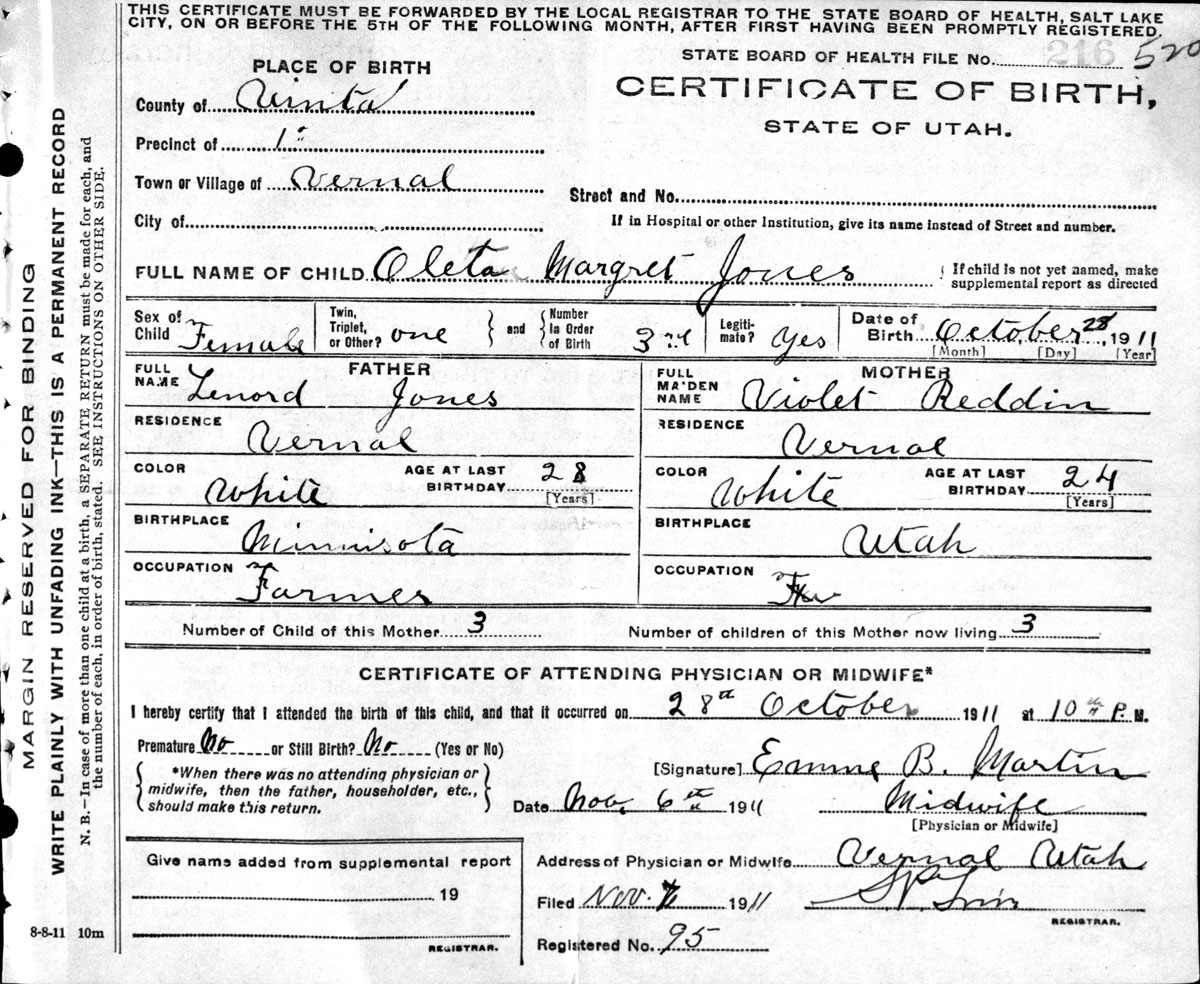 THIS CERTIFICATE MUST BE FORWARDED BY THE LOCAL REGISTRAR TO THE STATE BOARD OF HEALTH, SALT LAKE
CITY, ON OR BEFORE THE 5TH OF THE FOLLOWING MONTH, AFTER FIRST HAVING BEEN PROMPTLY REGISTERED.
STATE BOARD OF HEALTH FILE No. 216 520
CERTIFICATE OF BIRTH,
STATE OF UTAH.
PLACE OF BIRTH
County of Uinta
Precinct of 1st
Town or Village of Vernal
Street and No.
City of
If in Hospital or other Institution, give its name instead of Street and number.
FULL NAME OF CHILD Oleta Margret Jones
{ If child is not yet named, make
supplemental report as directed
Sex of Child Female
Twin, Triplet, or Other? one } and { Number in Order of Birth 3rd
Legiti-mate? Yes
Date of Birth October 28, 1911
[Month] [Day] [Year]
FATHER
FULL NAME Lenord Jones
RESIDENCE Vernal
COLOR White AGE AT LAST BIRTHDAY 28
[Years]
BIRTHPLACE Minnisota
OCCUPATION Farmer
MOTHER
FULL MAIDEN NAME Violet Reddin
RESIDENCE Vernal
COLOR White AGE AT LAST BIRTHDAY 24
[Years]
BIRTHPLACE Utah
OCCUPATION
Number of Child of this Mother 3
Number of children of this Mother now living 3
CERTIFICATE OF ATTENDING PHYSICIAN OR MIDWIFE*
I hereby certify that I attended the birth of this child, and that it occurred on 28th October 1911 at 10 P. M.
Premature No or Still Birth? No (Yes or No)
{ *When there was no attending physician or
midwife, then the father, householder, etc.,
should make this return. }
[Signature] Emma B. Martin
Date Nov. 6th 1911 Midwife
[Physician or Midwife]
Give name added from supplemental report
19
REGISTRAR.
Address of Physician or Midwife Vernal Utah
Filed Nov. 1911
REGISTRAR.
Registered No. 95
8-8-11 10m
MARGIN RESERVED FOR BINDING
WRITE PLAINLY WITH UNFADING INK—THIS IS A PERMANENT RECORD
N. B.—In case of more than one child at a birth, a SEPARATE RETURN must be made for each, and
the number of each, in order of birth, stated. SEE INSTRUCTIONS ON OTHER SIDE.